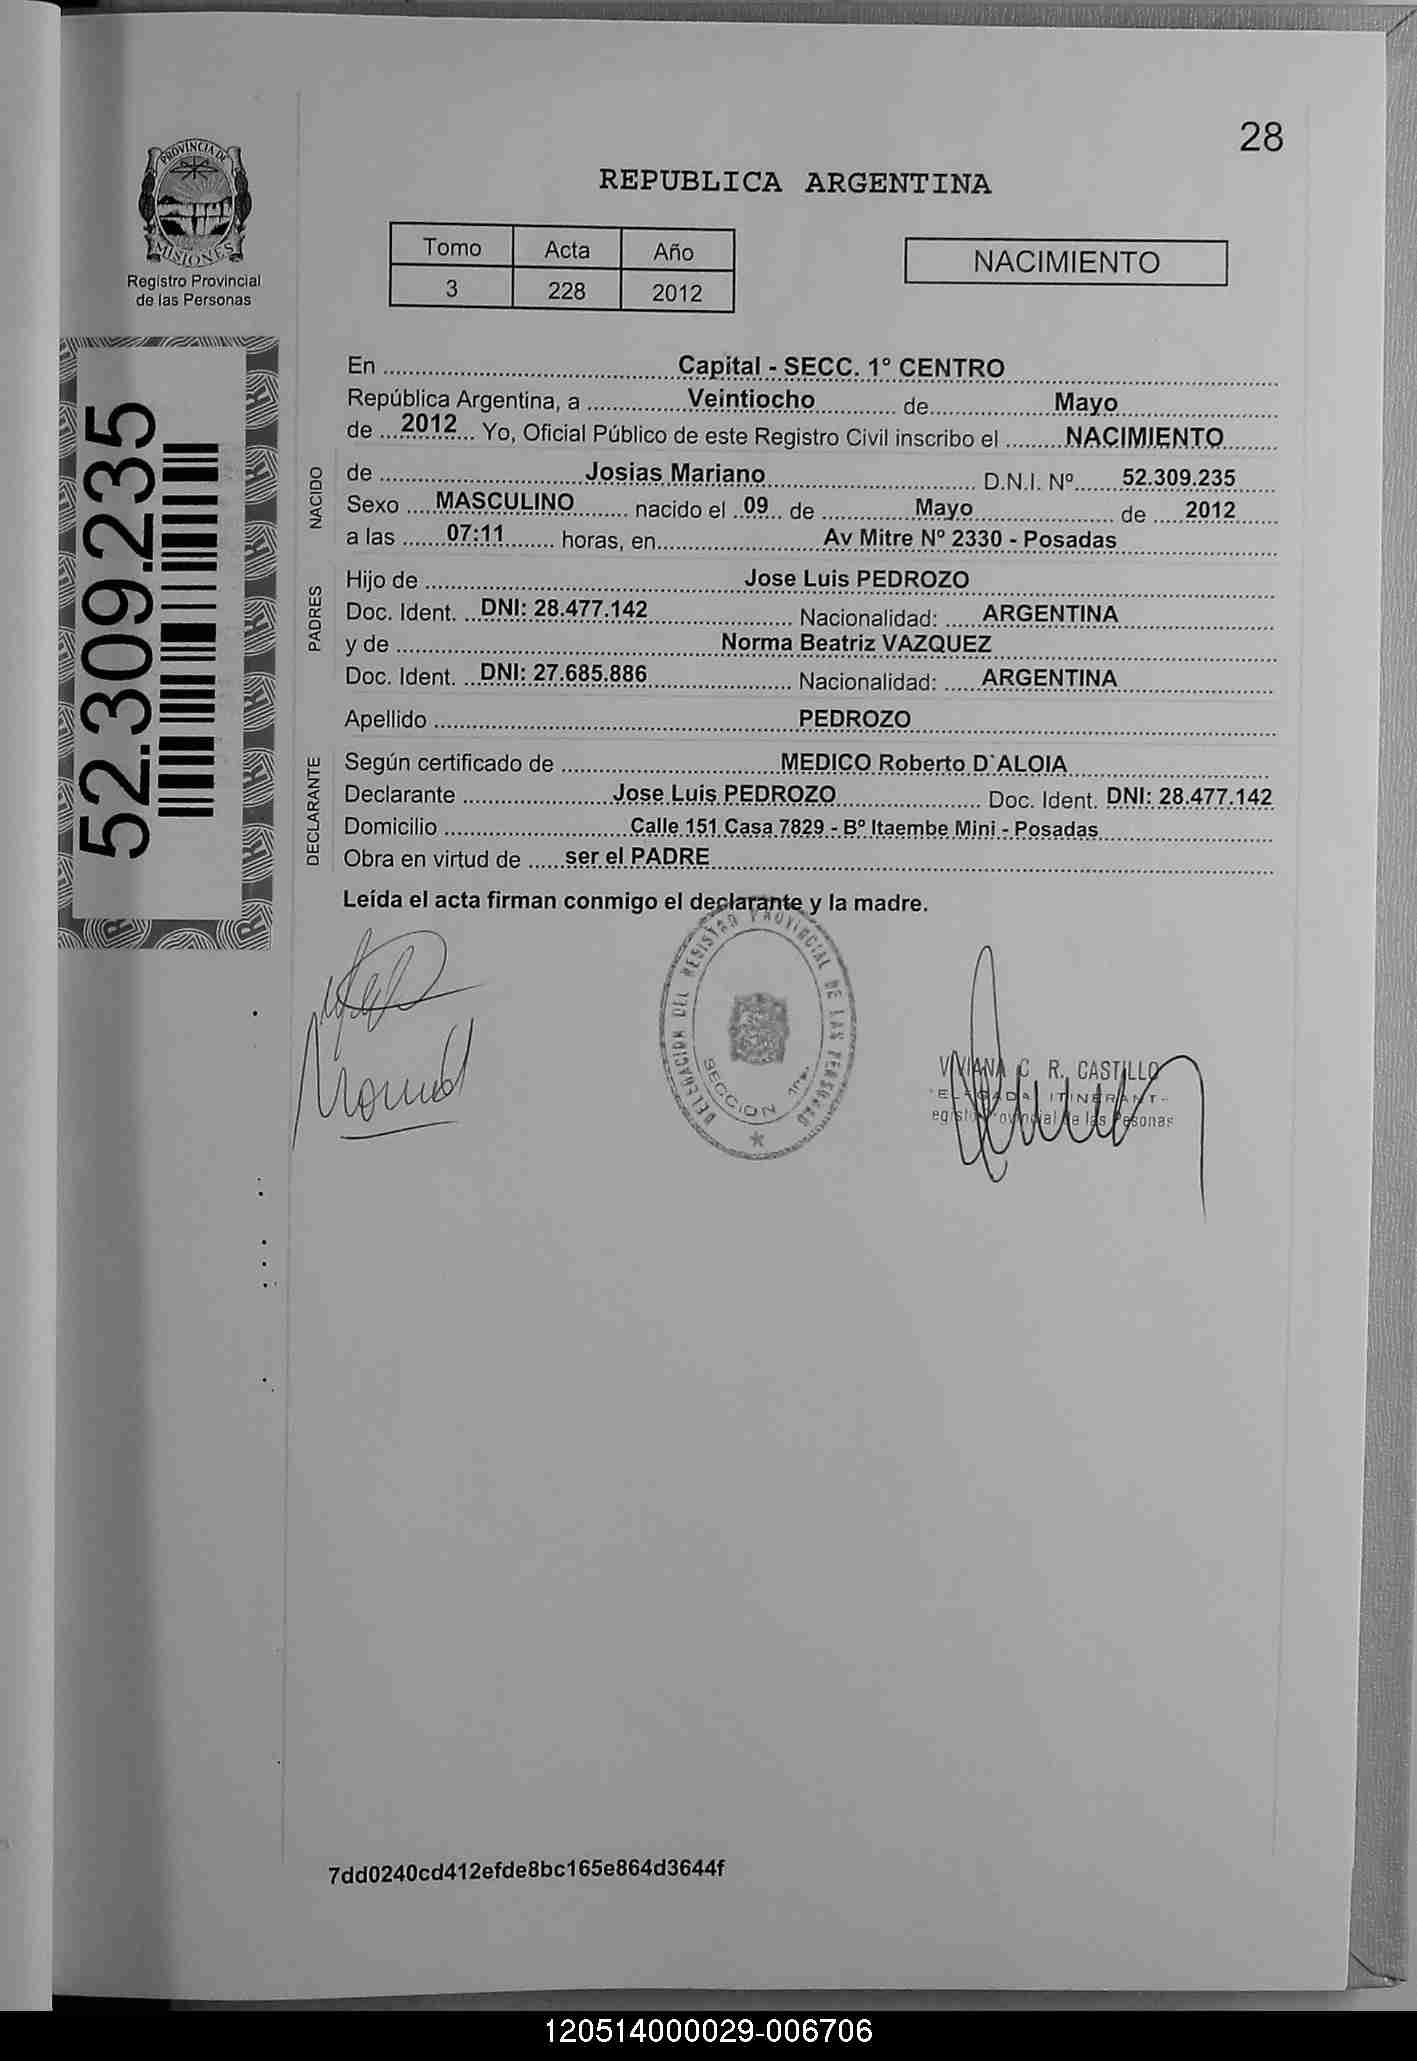 28
PROVINCIA DE
MISIONES
Registro Provincial
de las Personas
REPUBLICA ARGENTINA
Tomo Acta Año
3 228 2012
NACIMIENTO
52.309.235
En Capital - SECC. 1° CENTRO
República Argentina, a Veintiocho de Mayo
de 2012 Yo, Oficial Público de este Registro Civil inscribo el NACIMIENTO
NACIDO
de Josias Mariano D.N.I. Nº 52.309.235
Sexo MASCULINO nacido el 09 de Mayo de 2012
a las 07:11 horas, en Av Mitre Nº 2330 - Posadas
PADRES
Hijo de Jose Luis PEDROZO
Doc. Ident. DNI: 28.477.142 Nacionalidad: ARGENTINA
y de Norma Beatriz VAZQUEZ
Doc. Ident. DNI: 27.685.886 Nacionalidad: ARGENTINA
Apellido PEDROZO
DECLARANTE
Según certificado de MEDICO Roberto D`ALOIA
Declarante Jose Luis PEDROZO Doc. Ident. DNI: 28.477.142
Domicilio Calle 151 Casa 7829 - Bº Itaembe Mini - Posadas
Obra en virtud de ser el PADRE
Leída el acta firman conmigo el declarante y la madre.
DELEGACION DEL REGISTRO PROVINCIAL DE LAS PERSONAS
SECCION 1ra.
VIVIANA C. R. CASTILLO
7dd0240cd412efde8bc165e864d3644f
120514000029-006706